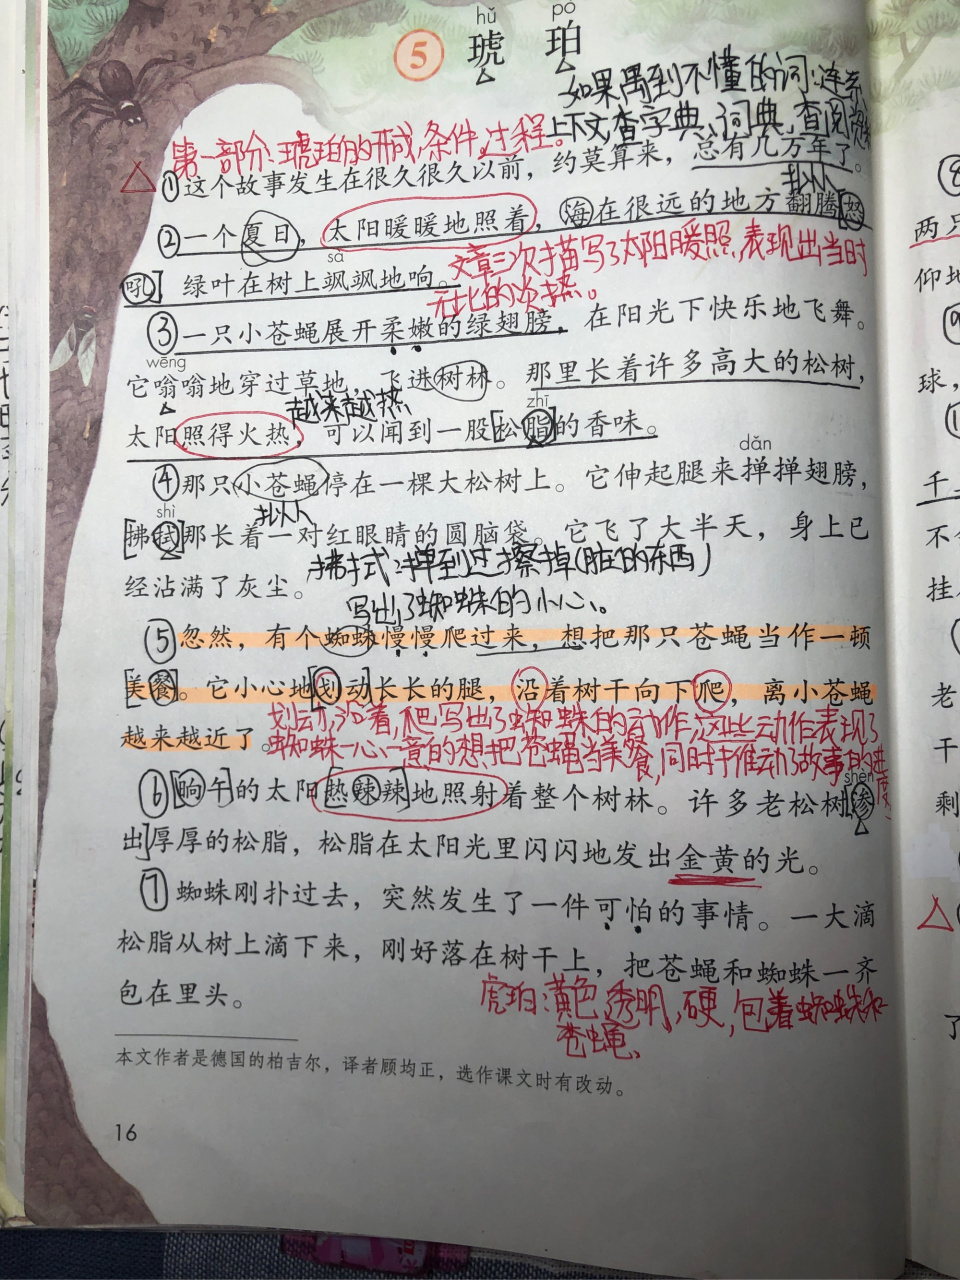 hǔ pò
5 琥 珀
如果遇到不懂的词:连系
上下文,查字典、词典,查阅
第一部分:琥珀的形成,条件,过程。
①这个故事发生在很久很久以前,约莫算来,总有几万年了。
拟人
②一个夏日,太阳暖暖地照着,海在很远的地方翻腾[怒
sà
吼] 绿叶在树上飒飒地响。
文章三次描写了太阳暖照,表现出当时
无比的炎热。
③一只小苍蝇展开柔嫩的绿翅膀,在阳光下快乐地飞舞。
wēng
它嗡嗡地穿过草地,飞进树林。那里长着许多高大的松树,
越来越热
zhī
太阳照得火热,可以闻到一股[松脂]的香味。
dǎn
④那只小苍蝇停在一棵大松树上。它伸起腿来掸掸翅膀,
shì
拟人
[拂拭]那长着一对红眼睛的圆脑袋。它飞了大半天,身上已
拂拭:掸到过擦掉(脏的东西)
经沾满了灰尘。
写出了蜘蛛的小心。
⑤忽然,有个蜘蛛慢慢爬过来,想把那只苍蝇当作一顿
[美餐]。它小心地[划动]长长的腿,沿着树干向下爬,离小苍蝇
划动,沿着,爬,写出了蜘蛛的动作,这些动作表现了
越来越近了。
蜘蛛一心一意的想把苍蝇当美餐,同时推动了故事的进度
shèn
⑥[晌午]的太阳[热辣辣]地照射着整个树林。许多老松树[渗
出]厚厚的松脂,松脂在太阳光里闪闪地发出金黄的光。
⑦蜘蛛刚扑过去,突然发生了一件可怕的事情。一大滴
松脂从树上滴下来,刚好落在树干上,把苍蝇和蜘蛛一齐
包在里头。
虎珀:黄色,透明,硬,包着蜘蛛和
苍蝇、
本文作者是德国的柏吉尔,译者顾均正,选作课文时有改动。
16
⑧
两只
仰地
⑨
球,
千
不
挂
老
干
剩
了